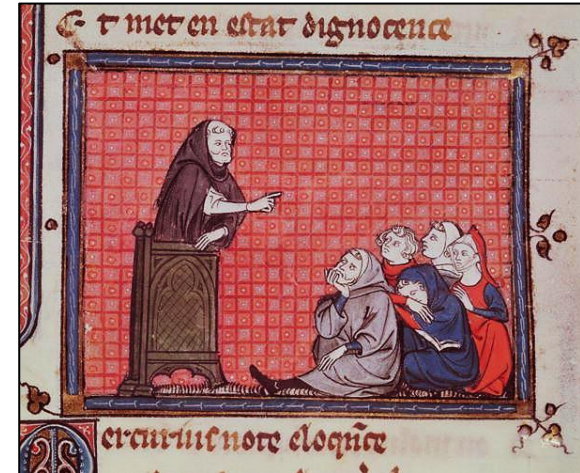 Et met en estat dignocence
Mercurius note eloqñce